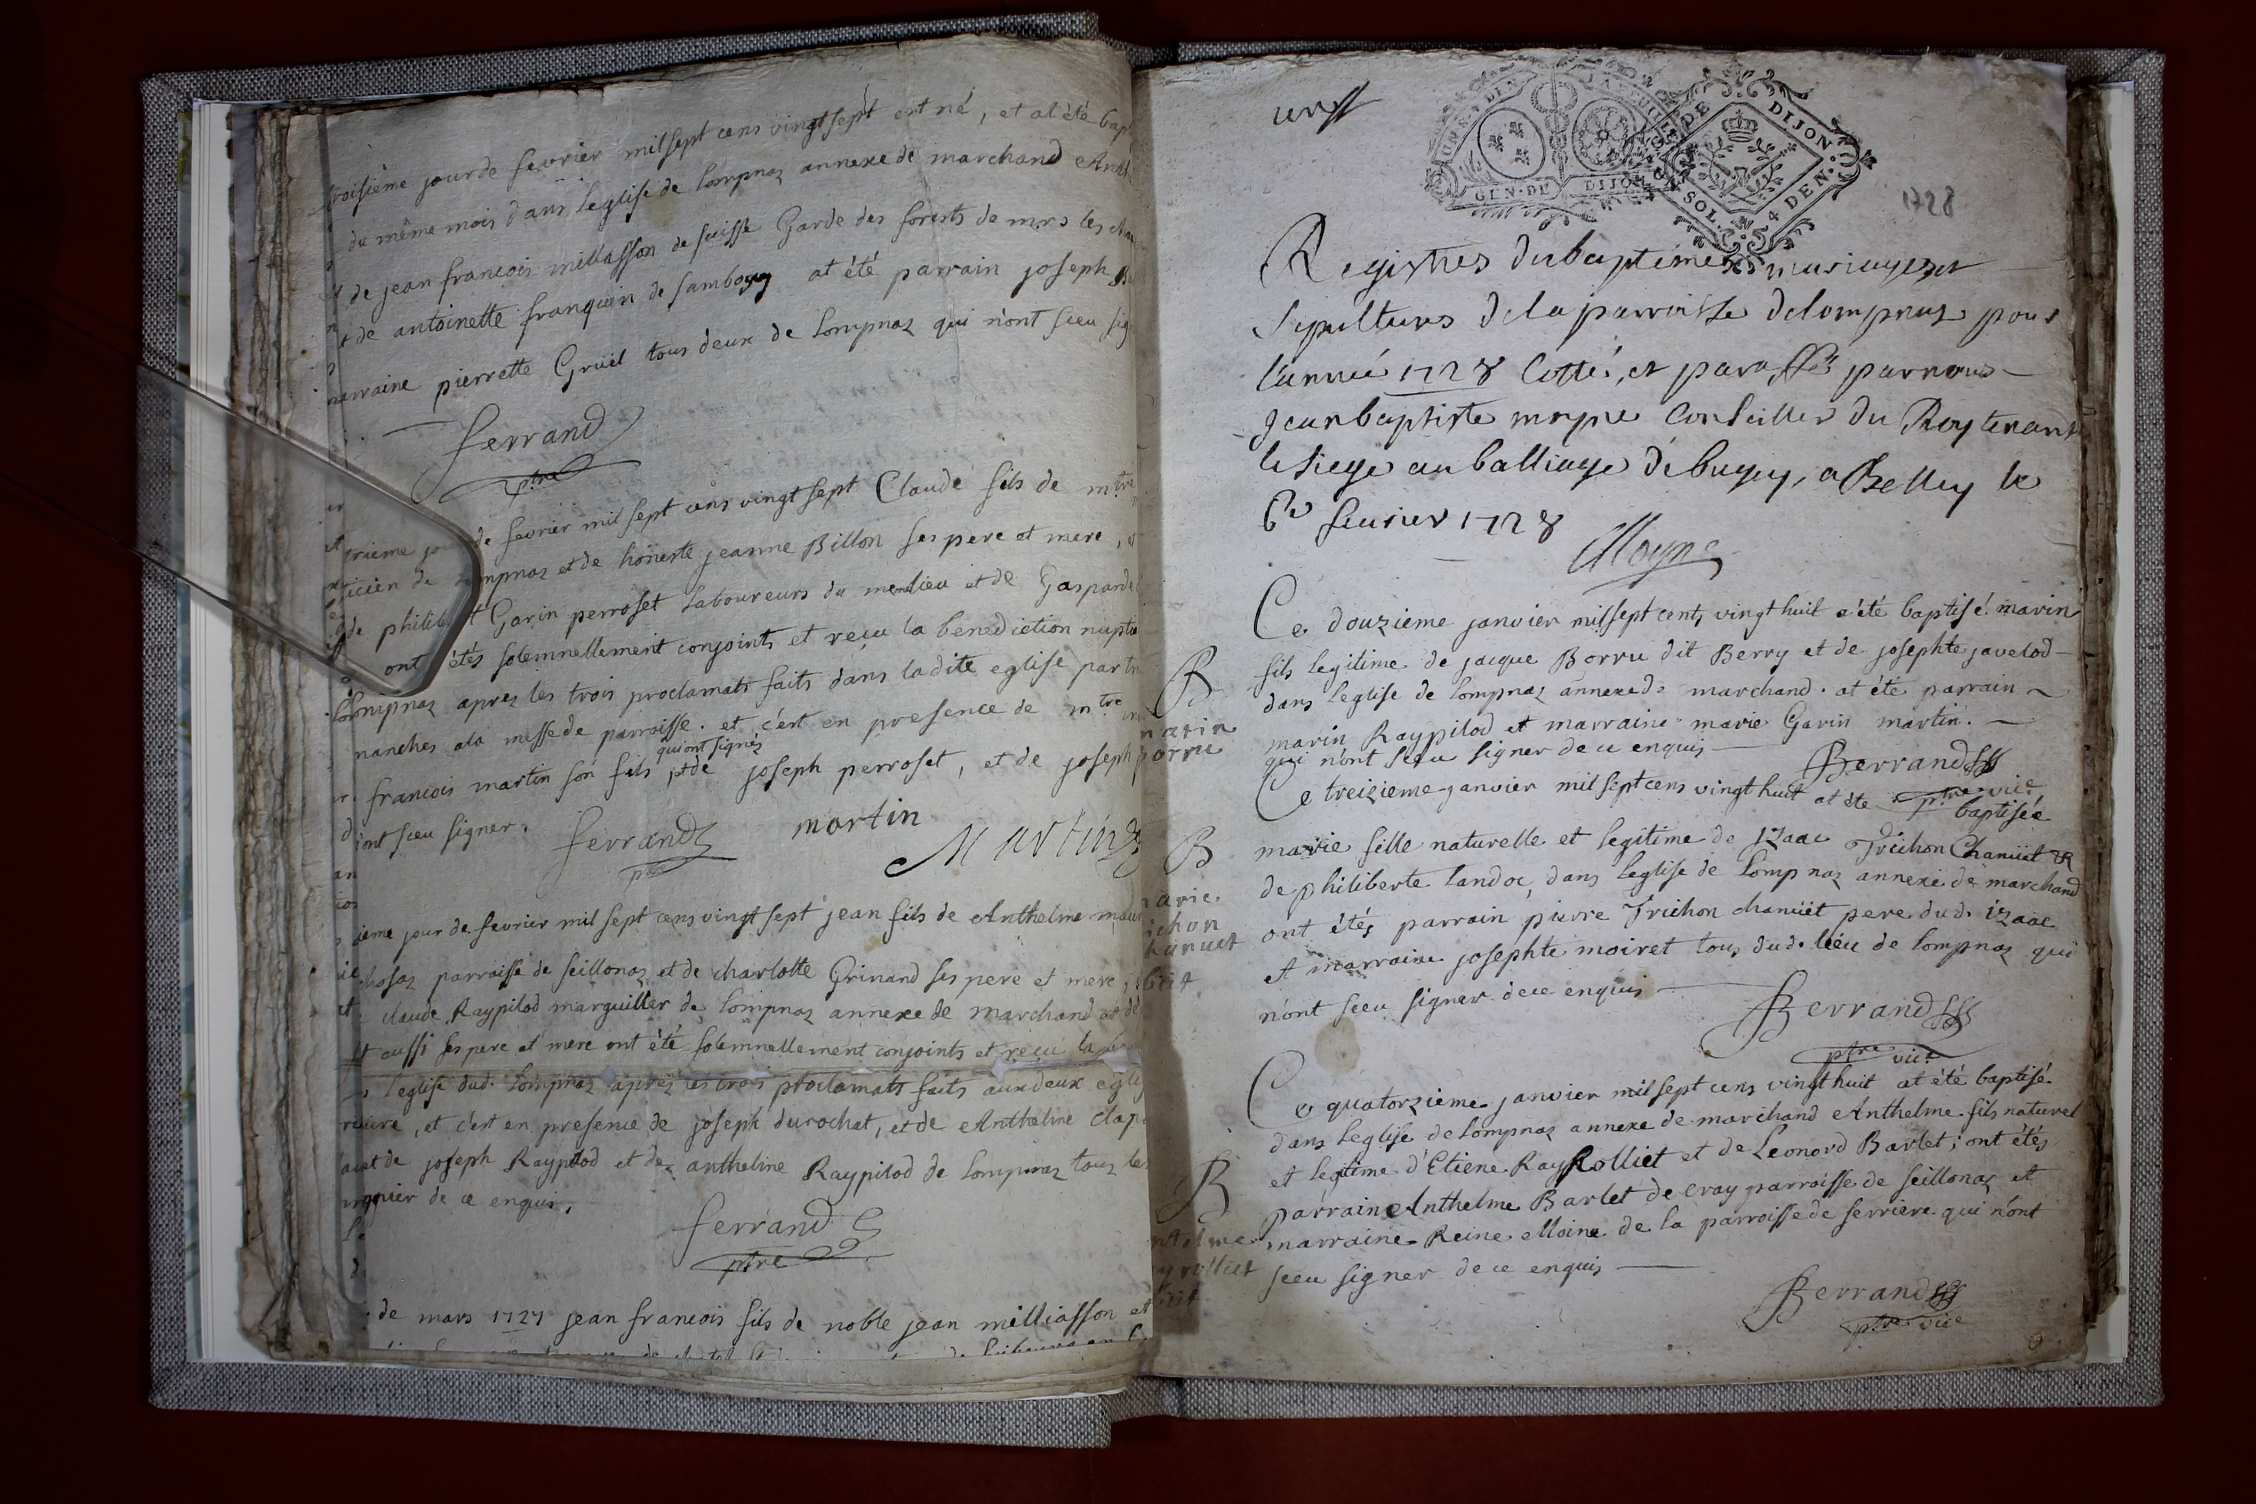 troisième jour de fevrier mil sept cens vingt sept est né, et at été bap
du même mois dans l'eglise de lompnaz annexe de marchand
de jean francois milliasson de suisse Garde des forests de mrs les
de antoinette franquin de at été parrain joseph
marraine pierrette Grüel tous deux de Lompnaz qui n'ont sceu sig
ferrand
ptre
de fevrier mil sept cens vingt sept Claude fils de mtre
ticien de lompnaz et de honneste jeanne Billon ses pere et mere, et
de philibert Garin perroset Laboureurs du même lieu et de Gasparde
ont étés solemnellement conjoints et reçu la benediction nuptia
Lompnaz apres les trois proclamats faits dans ladite eglise par tr
manches a la messe de parroisse. et c'est en presence de mtre
qui ont signés
francois martin son fils, et de joseph perroset, et de joseph
ont sceu signer.
ferrand
ptre
martin
Martin
ieme jour de fevrier mil sept cens vingt sept jean fils de Anthelme
parroisse de seillonaz et de charlotte Grinand ses pere et mere,
claude Raypilod marguillier de lompnaz annexe de marchand et de
aussi ses pere et mere ont été solemnellement conjoints et reçu la
l'eglise dud. Lompnaz apres les trois proclamats faits aux deux egli
, et c'est en presence de joseph durochat, et de Anthelme
de joseph Raypilod et de anthelme Raypilod de Lompnaz tous les
de ce enquis.
ferrand
ptre
de mars 1727 jean francois fils de noble jean milliasson et
GEN. DE DIJON
DE DIJON
SOL. 4 DEN.
1728
Registres du baptêmes mariages et
sepultures de la parroisse de lompnas pour
l'année 1728 Cotté, et paraffé par nous
jean baptiste moyne Conseiller du Roy tenant
le siege au balliage de bugey, a Belley le
6e feurier 1728
Moyne
Ce douzieme janvier mil sept cents vingt huit a été baptisé marin
fils legitime de jacque Borru dit Berry et de josephte javelod
dans l'eglise de lompnaz annexe de marchand. at été parrain
marin Raypilod et marraine marie Garin martin.
qui n'ont sceu signer de ce enquis
B
marin
borru
Ferrand
ptre vic
Ce treizieme janvier mil sept cens vingt huit at été baptisée
marie fille naturelle et legitime de Izaac Trichon Chanüet et
de philiberte Landoz, dans l'eglise de Lompnaz annexe de marchand
ont étés parrain pierre Trichon chanüet pere dud. izaac
et marraine josephte moiret tous dud. lieu de lompnaz qui
n'ont sceu signer de ce enquis
B
marie
trichon
chanuet
Ferrand
ptre vic
Ce quatorzieme janvier mil sept cens vingt huit at été baptisé
dans l'eglise de Lompnaz annexe de marchand Anthelme fils naturel
et legitime d'Etiene Ray Rolliet et de Leonord Barlet; ont étés
parrain Anthelme Barlet de cray parroisse de seillonaz et
marraine Reine Moine de la parroisse de serriere qui n'ont
sceu signer de ce enquis
B
Ferrand
ptre vic